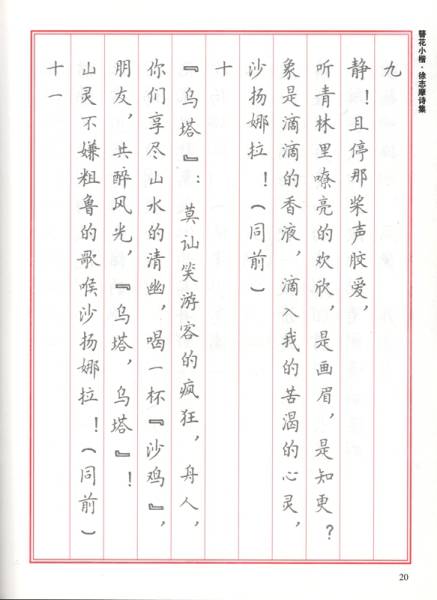 簪花小楷·徐志摩诗集
九
静！且停那桨声胶爱，
听青林里嘹亮的欢欣，是画眉，是知更？
象是滴滴的香液，滴入我的苦渴的心灵，
沙扬娜拉！（同前）
十
『乌塔』：莫讪笑游客的疯狂，舟人，
你们享尽山水的清幽，喝一杯『沙鸡』，
朋友，共醉风光，『乌塔，乌塔』！
山灵不嫌粗鲁的歌喉沙扬娜拉！（同前）
十一
20